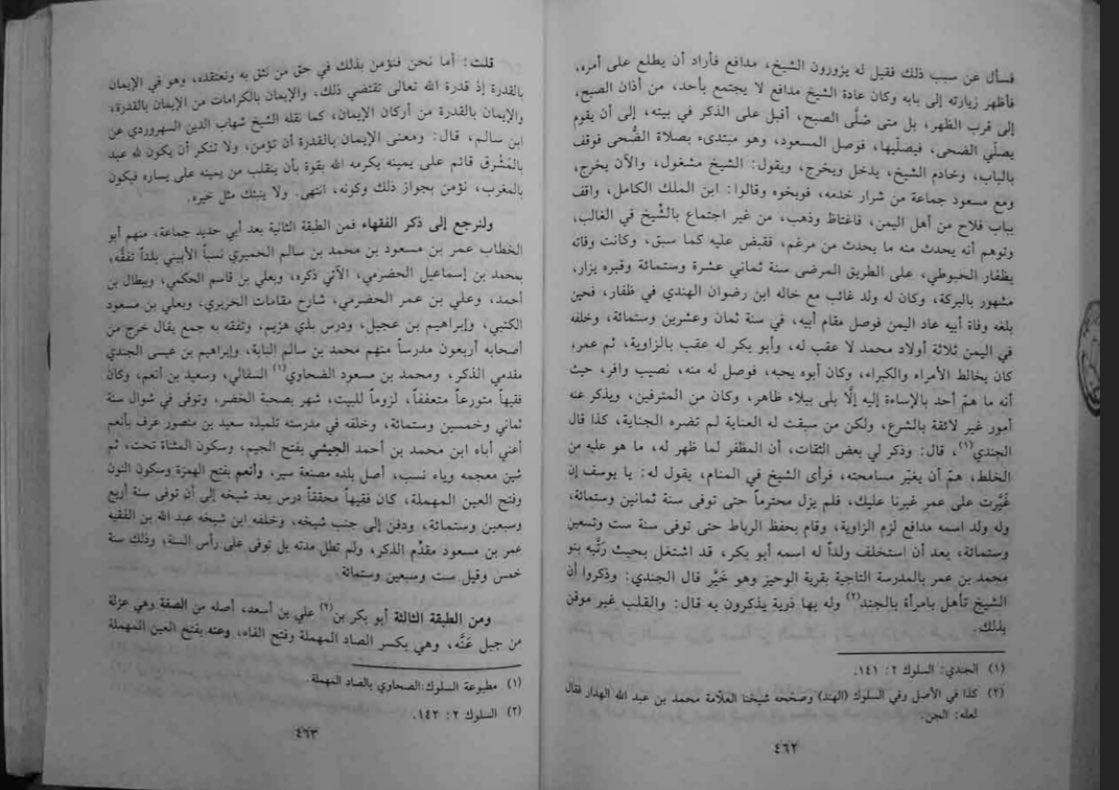 فسأل عن سبب ذلك فقيل له يزورون الشيخ، مدافع فأراد أن يطلع على أمره،
فأظهر زيارته إلى بابه وكان عادة الشيخ مدافع لا يجتمع بأحد، من أذان الصبح،
إلى قرب الظهر، بل متى صلَّى الصبح، أقبل على الذكر في بيته، إلى أن يقوم
يصلّي الضحى، فيصلّيها، فوصل المسعود، وهو مبتدىء بصلاة الضُّحى فوقف
بالباب، وخادم الشيخ، يدخل ويخرج، ويقول: الشيخ مشغول، والآن يخرج،
ومع مسعود جماعة من شرار خدمه، فوبخوه وقالوا: ابن الملك الكامل، واقف
بباب فلاح من أهل اليمن، فاغتاظ وذهب، من غير اجتماع بالشَّيخ في الغالب،
وتوهم أنه يحدث منه ما يحدث من مرغم، فقبض عليه كما سبق، وكانت وفاته
بظفار الحبوطي، على الطريق المرضى سنة ثماني عشرة وستمائة وقبره يزار،
مشهور بالبركة، وكان له ولد غائب مع خاله ابن رضوان الهندي في ظفار، فحين
بلغه وفاة أبيه عاد اليمن فوصل مقام أبيه، في سنة ثمان وعشرين وستمائة، وخلفه
في اليمن ثلاثة أولاد محمد لا عقب له، وأبو بكر له عقب بالزاوية، ثم عمر،
كان يخالط الأمراء والكبراء، وكان أبوه يحبه، فوصل له منه، نصيب وافر، حيث
أنه ما همّ أحد بالإساءة إليه إلَّا بلى ببلاء ظاهر، وكان من المترفين، ويذكر عنه
أمور غير لائقة بالشرع، ولكن من سبقت له العناية لم تضره الجناية، كذا قال
الجندي(١)، قال: وذكر لي بعض الثقات، أن المظفر لما ظهر له، ما هو عليه من
الخلط، همّ أن يغيّر مسامحته، فرأى الشيخ في المنام، يقول له: يا يوسف إن
غَيَّرت على عمر غيرنا عليك، فلم يزل محترماً حتى توفى سنة ثمانين وستمائة،
وله ولد اسمه مدافع لزم الزاوية، وقام بحفظ الرباط حتى توفى سنة ست وتسعين
وستمائة، بعد أن استخلف ولداً له اسمه أبو بكر، قد اشتغل بحيث رَتَّبه بنو
محمد بن عمر بالمدرسة التاجية بقرية الوحيز وهو خَيَّر قال الجندي: وذكروا أن
الشيخ تأهل بامرأة بالجند(٢) وله بها ذرية يذكرون به قال: والقلب غير موقن
بذلك.
(١) الجندي: السلوك ٢: ١٤١.
(٢) كذا في الأصل وفي السلوك (الهند) وصححه شيخنا العلاّمة محمد بن عبد الله الهدار فقال
لعله: الجن.
٤٦٢
قلت: أما نحن فنؤمن بذلك في حق من نثق به ونعتقده، وهو في الإيمان
بالقدرة إذ قدرة الله تعالى تقتضي ذلك، والإيمان بالكرامات من الإيمان بالقدرة،
والإيمان بالقدرة من أركان الإيمان، كما نقله الشيخ شهاب الدين السهروردي عن
ابن سالم، قال: ومعنى الإيمان بالقدرة أن تؤمن، ولا تنكر أن يكون لله عبد
بالمَشْرق قائم على يمينه يكرمه الله بقوة بأن ينقلب من يمينه على يساره فيكون
بالمغرب، نؤمن بجواز ذلك وكونه، انتهى. ولا ينبئك مثل خبره.
ولنرجع إلى ذكر الفقهاء فمن الطبقة الثانية بعد أبي حديد جماعة، منهم أبو
الخطاب عمر بن مسعود بن محمد بن سالم الحميري نسباً الأبيني بلداً تفقَّه،
بمحمد بن إسماعيل الحضرمي، الآتي ذكره، وبعلي بن قاسم الحكمي، وببطال بن
أحمد، وعلي بن عمر الحضرمي، شارح مقامات الحريري، وبعلي بن مسعود
الكثبي، وإبراهيم بن عجيل، ودرس بذي هزيم، وتفقه به جمع يقال خرج من
أصحابه أربعون مدرساً منهم محمد بن سالم البابة، وإبراهيم بن عيسى الجندي
مقدمي الذكر، ومحمد بن مسعود الضحاوي(١) السفالي، وسعيد بن أنعم، وكان
فقيهاً متورعاً متعففاً، لزوماً للبيت، شهر بصحبة الخضر، وتوفى في شوال سنة
ثماني وخمسين وستمائة، وخلفه في مدرسته تلميذه سعيد بن منصور عرف بأنعم
أعني أباه ابن محمد بن أحمد الجيشي بفتح الجيم، وسكون المثناة تحت، ثم
شين معجمه وياء نسب، أصل بلده مصنعة سير، وأنعم بفتح الهمزة وسكون النون
وفتح العين المهملة، كان فقيهاً محققاً درس بعد شيخه إلى أن توفى سنة أربع
وسبعين وستمائة، ودفن إلى جنب شيخه، وخلفه ابن شيخه عبد الله بن الفقيه
عمر بن مسعود مقدَّم الذكر، ولم تطل مدته بل توفى على رأس السنة، وذلك سنة
خمس وقيل ست وسبعين وستمائة.
ومن الطبقة الثالثة أبو بكر بن(٢) علي بن أسعد، أصله من الصفة وهي عزلة
من جبل عَنَّه، وهي بكسر الصاد المهملة وفتح الفاء، وعنه بفتح العين المهملة
(١) مطبوعة السلوك: الصحاوي بالصاد المهملة.
(٢) السلوك ٢: ١٤٢.
٤٦٣